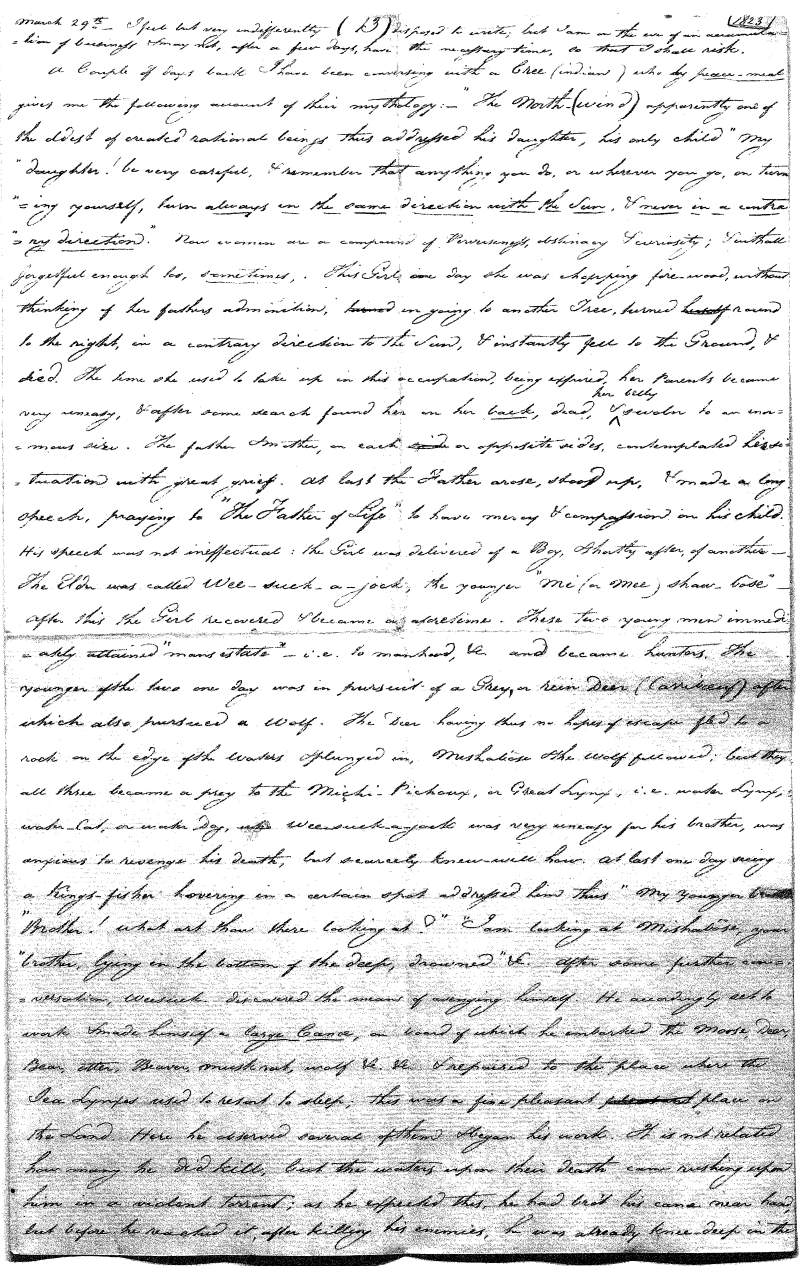 March 29th – I feel but very indifferently (13) disposed to write, but I am on the eve of an accumula- (1823)
=tion of business & may not, after a few days, have the necessary time, so that I shall risk.
A Couple of days back I have been conversing with a Cree (indian) who by peace-meal
gives me the following account of their mythology:– "The North-(wind) apparently one of
the oldest of created rational beings thus addressed his daughter, his only child "My
"daughter! be very careful, & remember that anything you do, or wherever you go, on turn
"=ing yourself, turn always in the same direction with the Sun, & never in a contra
"=ry direction." Now women are a compound of Perverseness, obstinacy & curiosity; & withall
forgetful enough too, sometimes,. This Girl one day she was chopping fire-wood, without
thinking of her fathers admonition, turned in going to another Tree, turned herself round
to the right, in a contrary direction to the Sun, & instantly fell to the Ground, &
died. The time she used to take up in this occupation, being expired, her Parents became
her belly
very uneasy, & after some search found her on her back, dead, & swoln to an enor=
=mous size. The father & mother, on each side or opposite sides, contemplated her si=
=tuation with great grief. At last the Father arose, stood up, & made a long
speech, praying to "The Father of Life" to have mercy & compassion on his child.
His speech was not ineffectual: the Girl was delivered of a Boy, & shortly after, of another–
The Elder was called Wee-suck-a-jock, the younger "Mi (or Mee) shaw-bose"–
after this the Girl recovered & became as aforetime. These two young men immedi
=ately attained "mans estate" – i.e. to manhood, &c and became hunters. The
younger of the two one day was in pursuit of a Grey, or rein Deer (Carribeuf) after
which also pursued a Wolf. The Deer having thus no hopes of escape fled to a
rock on the edge of the waters & plunged in, Mishabôse & the wolf followed; but they
all three became a prey to the Michi-Pichoux, or Great Lynx, i.e. water Lynx,
water-Cat, or water Dog, Weesuck-a-jock was very uneasy for his brother, was
anxious to revenge his death, but scarcely knew well how. At last one day seeing
a Kings-fisher hovering in a certain spot addressed him thus "My younger
"Brother! what art thou there looking at?" "I am looking at Mishabôse, your
"brother, lying in the bottom of the deep, drowned" &c. After some further con=
=versation, Weesuck. discovered the means of avenging himself. He accordingly set to
work & made himself a large Canoe, on board of which he embarked the Moose, Deer,
Bear, otter, Beaver, musk rat, wolf &c. &c. & repaired to the place where the
Sea Lynxes used to resort to sleep; this was a fine pleasant pleasant place on
the Land. Here he observed several of them & began his work. It is not related
how many he did kill, but the waters upon their death came rushing upon
him in a violent torrent; as he expected this, he had his canoe near hand,
but before he reached it, after killing his enemies, he was already knee-deep in the